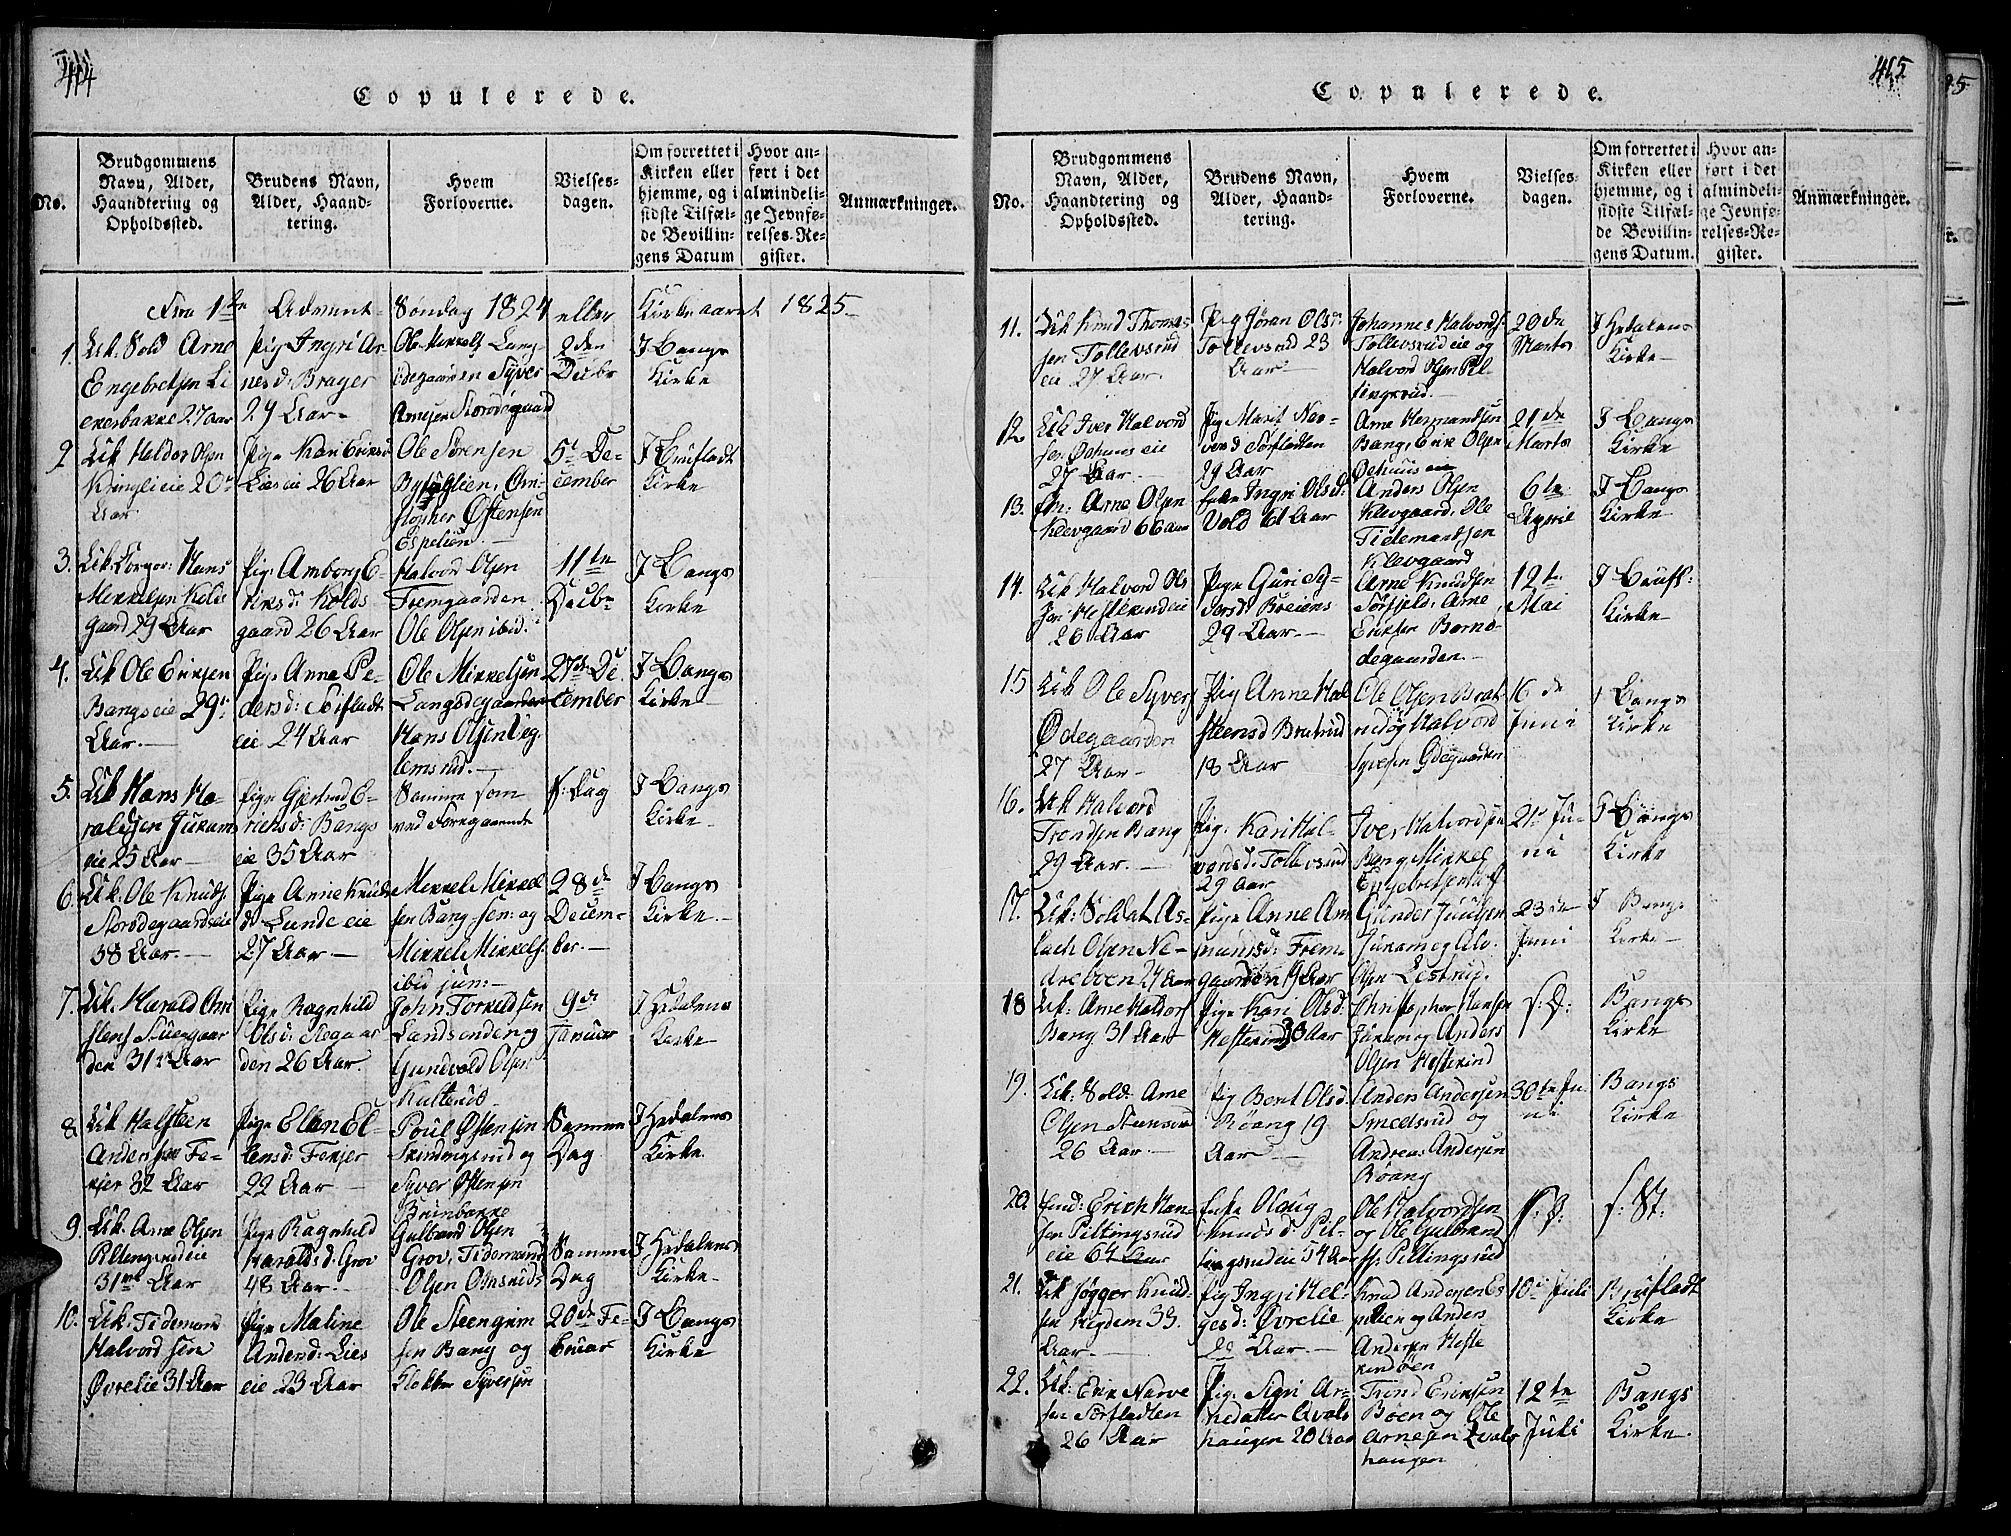 414
Copulerede.
No.
Brudgommens
Navn, Alder,
Haandtering og
Opholdssted.
Brudens Navn,
Alder, Haand-
tering.
Hvem
Forloverne.
Vielses-
dagen.
Om forrettet i
Kirken eller
hjemme, og i
sidste Tilfæl-
de Bevillin-
gens Datum
Hvor an-
ført i det
almindeli-
ge Jevnfø-
relses-Re-
gister.
Anmærkninger.
Fra 1ste Advent-Søndag 1824 eller Kirkeaaret 1825.
1.
Ek: Sold Arne
Engebretsen Li-
enebakke 27 Aar
Pig Ingri Ar-
nesd: Brager
29 Aar
Ole Mikkels Lang-
ødegaarden Syver
Arnesen Storødegaard
2den
Decbr
I Bangs
Kirke
2
Ek Haldor Olsen
Kringlieie 20
Aar
Pige Kari Eriksd
Lieseie 26 Aar
Ole Sørensen
Østensen
Espelien
5t De-
cember
I Brufladt
Kirke
3.
Hans
Mikkelsen Kolds
gaard 29 Aar
Pig: Amborg E-
riksd: Kolds
gaard 26 Aar
Halvord Olsen
Fremgaarden
Ole Olsen ibid:
11te
Decbr
I Bangs
Kirke
4.
Ek Ole Eriksen
Bangseie 29
Aar.
Pige Anne Pe-
dersd: Sørfladt
eie 24 Aar
Ole Mikkelsen
Langødegaarden
Hans Olsen Leg-
lemsrud.
27de De-
cember
I Bangs
Kirke
5.
Ek Hans Ha-
raldsen Juram
eie 25 Aar
Pige Gjertrud E-
richsd: Bangs
eie 35 Aar
Samme som
ved Foregaaende
s: Dag
I Bangs
Kirke
6.
Ek. Ole Knuds:
Storødegaardseie
38 Aar.
Pige Anne Knuds
d: Lunde eie
27 Aar
Mikkel Mikkel
sen Bang sen: og
Mikkel Mikkels:
ibid jun:
28de
Decem-
ber.
I Bangs
Kirke.
7.
Ek. Harald
Stuegaar
den 31 Aar
Pige Ragnhild
Olsd: Stegaar
den 26 Aar.
John Torkildsen
og
Gundvald Olsen
9de
Januar
I Hedalens
Kirke
8.
Ek Halsteen
Andersen Fe-
kjer 32 Aar
Pige Ellen El-
lensd: Fekjer
22 Aar
Poul Østensen
Skindingsrud og
Syver Østensen
Brunbakke
Samme
Dag
I Hedalens
Kirke.
9.
Ek. Arne Olsen
Pillengsrudeie
31 Aar
Pige Ragnhild
Haraldsd: Grov
48 Aar.
Gulbrand Olsen
Grov, Tidemand
Olsen Omsrud
Samme
Dag
I Hedalens
Kirke
10.
Ek. Tidemand
Halvordsen
Øvrelie 31 Aar
Pige Maline
Andersd: Lies
eie 23 Aar
Ole Steengrim
sen Bang og
Klokker Syversen
20de Fe-
bruar
I Bangs
Kirke
415
Copulerede.
No.
Brudgommens
Navn, Alder,
Haandtering og
Opholdssted.
Brudens Navn,
Alder, Haand-
tering.
Hvem
Forloverne.
Vielses-
dagen.
Om forrettet i
Kirken eller
hjemme, og i
sidste Tilfæl-
de Bevillin-
gens Datum.
Hvor an-
ført i det
almindeli-
ge Jevnfø-
relses-Re-
gister.
Anmærkninger.
11.
Ek Knud Thomes
sen Tollevsrud
eie 27 Aar.
Pig Jøran Olsd:
Tollevsrud 23
Aar
Johannes Halvords:
Tollevsrudeie og
Halvord Olsen Pil-
lingsrud.
20de
Marts
I Hedalens
Kirke
12.
Ek Iver Halvord
sen eie
27 Aar
Pig Marit Nar-
vesd Sørfladten
29 Aar
Arne Hermandsen
Bang, Erik Olsen
21de
Marts
I Bangs
Kirke
13.
Arne Olsen
Klevgaard 66 Aar
Enke Ingri Olsd:
Vold 61 Aar
Anders Olsen
Klevgaard, Ole
Tidemandsen
Klevgaard
6te
April
I Bangs
Kirke
14.
Ek Halvord Ols
sen Hestekindeie
26 Aar
Pige Guri Sy-
versd: Breiens
29 Aar.
Arne Knudsen
Sørfjeld, Arne
Eriksen Bernø-
degaarden.
12te
Mai
I Brufl:
Kirke
15
Ek Ole Syvers
Ødegaarden
27 Aar
Pig Anne Hal
steensd Bratrud
18 Aar
Ole Olsen Brat-
rud og Halvord
Syversen Ødegaarden
16de
Juni
I Bangs
Kirke
16.
Ek Halvord
Trondsen Bang
29 Aar.
Pig: Kari Hal-
vorsd: Tollevsrud
29 Aar
Iver Halvordsen
Bang, Mikkel
Engebretsen
21de Ju-
ni
I Bangs
Kirke
17.
Ek: Soldat As-
lach Olsen Ne-
dreboen 24 Aar
Pige Anne Am
mundsd: Frem-
gaarden 19 Aar
Gunder Juulsen
Juram og Ole
Olsen
23de
Juni
I Bangs
Kirke
18
Ek: Arne Haldors
Bang 31 Aar
Pige Kari Olsd:
Hestekind 33 Aar
Christopher Hansen
Juram og Anders
Olsen Hestekind
s: D:
Bangs
Kirke
19.
Ek: Sold: Arne
Olsen Steensrud
26 Aar
Pig Berit Olsd
Røang 19
Aar
Anders Andersen
Smeelsrud og
Andreas Andersen
Røang
30te Ju-
ni
Bangs
Kirke
20.
Erich Han-
sen Piltingsrud
eie 64 Aar
Enke Oloug
Knudsd: Pil-
tingsrudeie 54 Aar
Ole Halvordsen
og Ole Gulbrand
s: Pillingsrud
s: D:
s: St:
21.
Ek Jøgger Knud
sen Rigdem 33.
Aar.
Pig Ingri Hel-
gesd: Øvrelie
22 Aar.
Knud Andersen Es-
pelien og Anders
Andersen Heste
kindøen
10de Juli
Brufladt
Kirke
22.
Ek: Erik Narve
sen Sørfladten
26 Aar
Pig. Sigri Ar-
nedatter Qvals
haugen 20 Aar
Trond Eriksen
Bøen og Ole
Arnesen Qvals
haugen
12te
Juli
Bangs
Kirke.